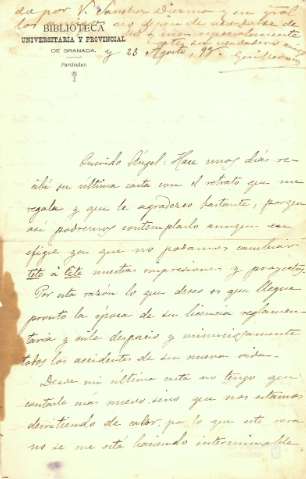 da por V. 
BIBLIOTECA
UNIVERSITARIA Y PROVINCIAL
DE GRANADA.
Particular.
y 23 Agosto, 95.
Querido Ángel. Hace unos días re
cibí su última carta con el retrato que me
regala y que le agradezco bastante, porque
así podremos contemplarlo aunque en
efigie ya que no podamos cambiar
tête à tête nuestras impresiones y proyectos.
Por esta razón lo que deseo es que llegue
pronto la época de su licencia reglamen-
taria y oirle despacio y minuciosamente
todos los accidentes de su nueva vida.
Desde mi última carta no tengo que
contarle más nuevo, sino que nos estamos
derritiendo de calor, por lo que este verano
no se me está haciendo interminable.